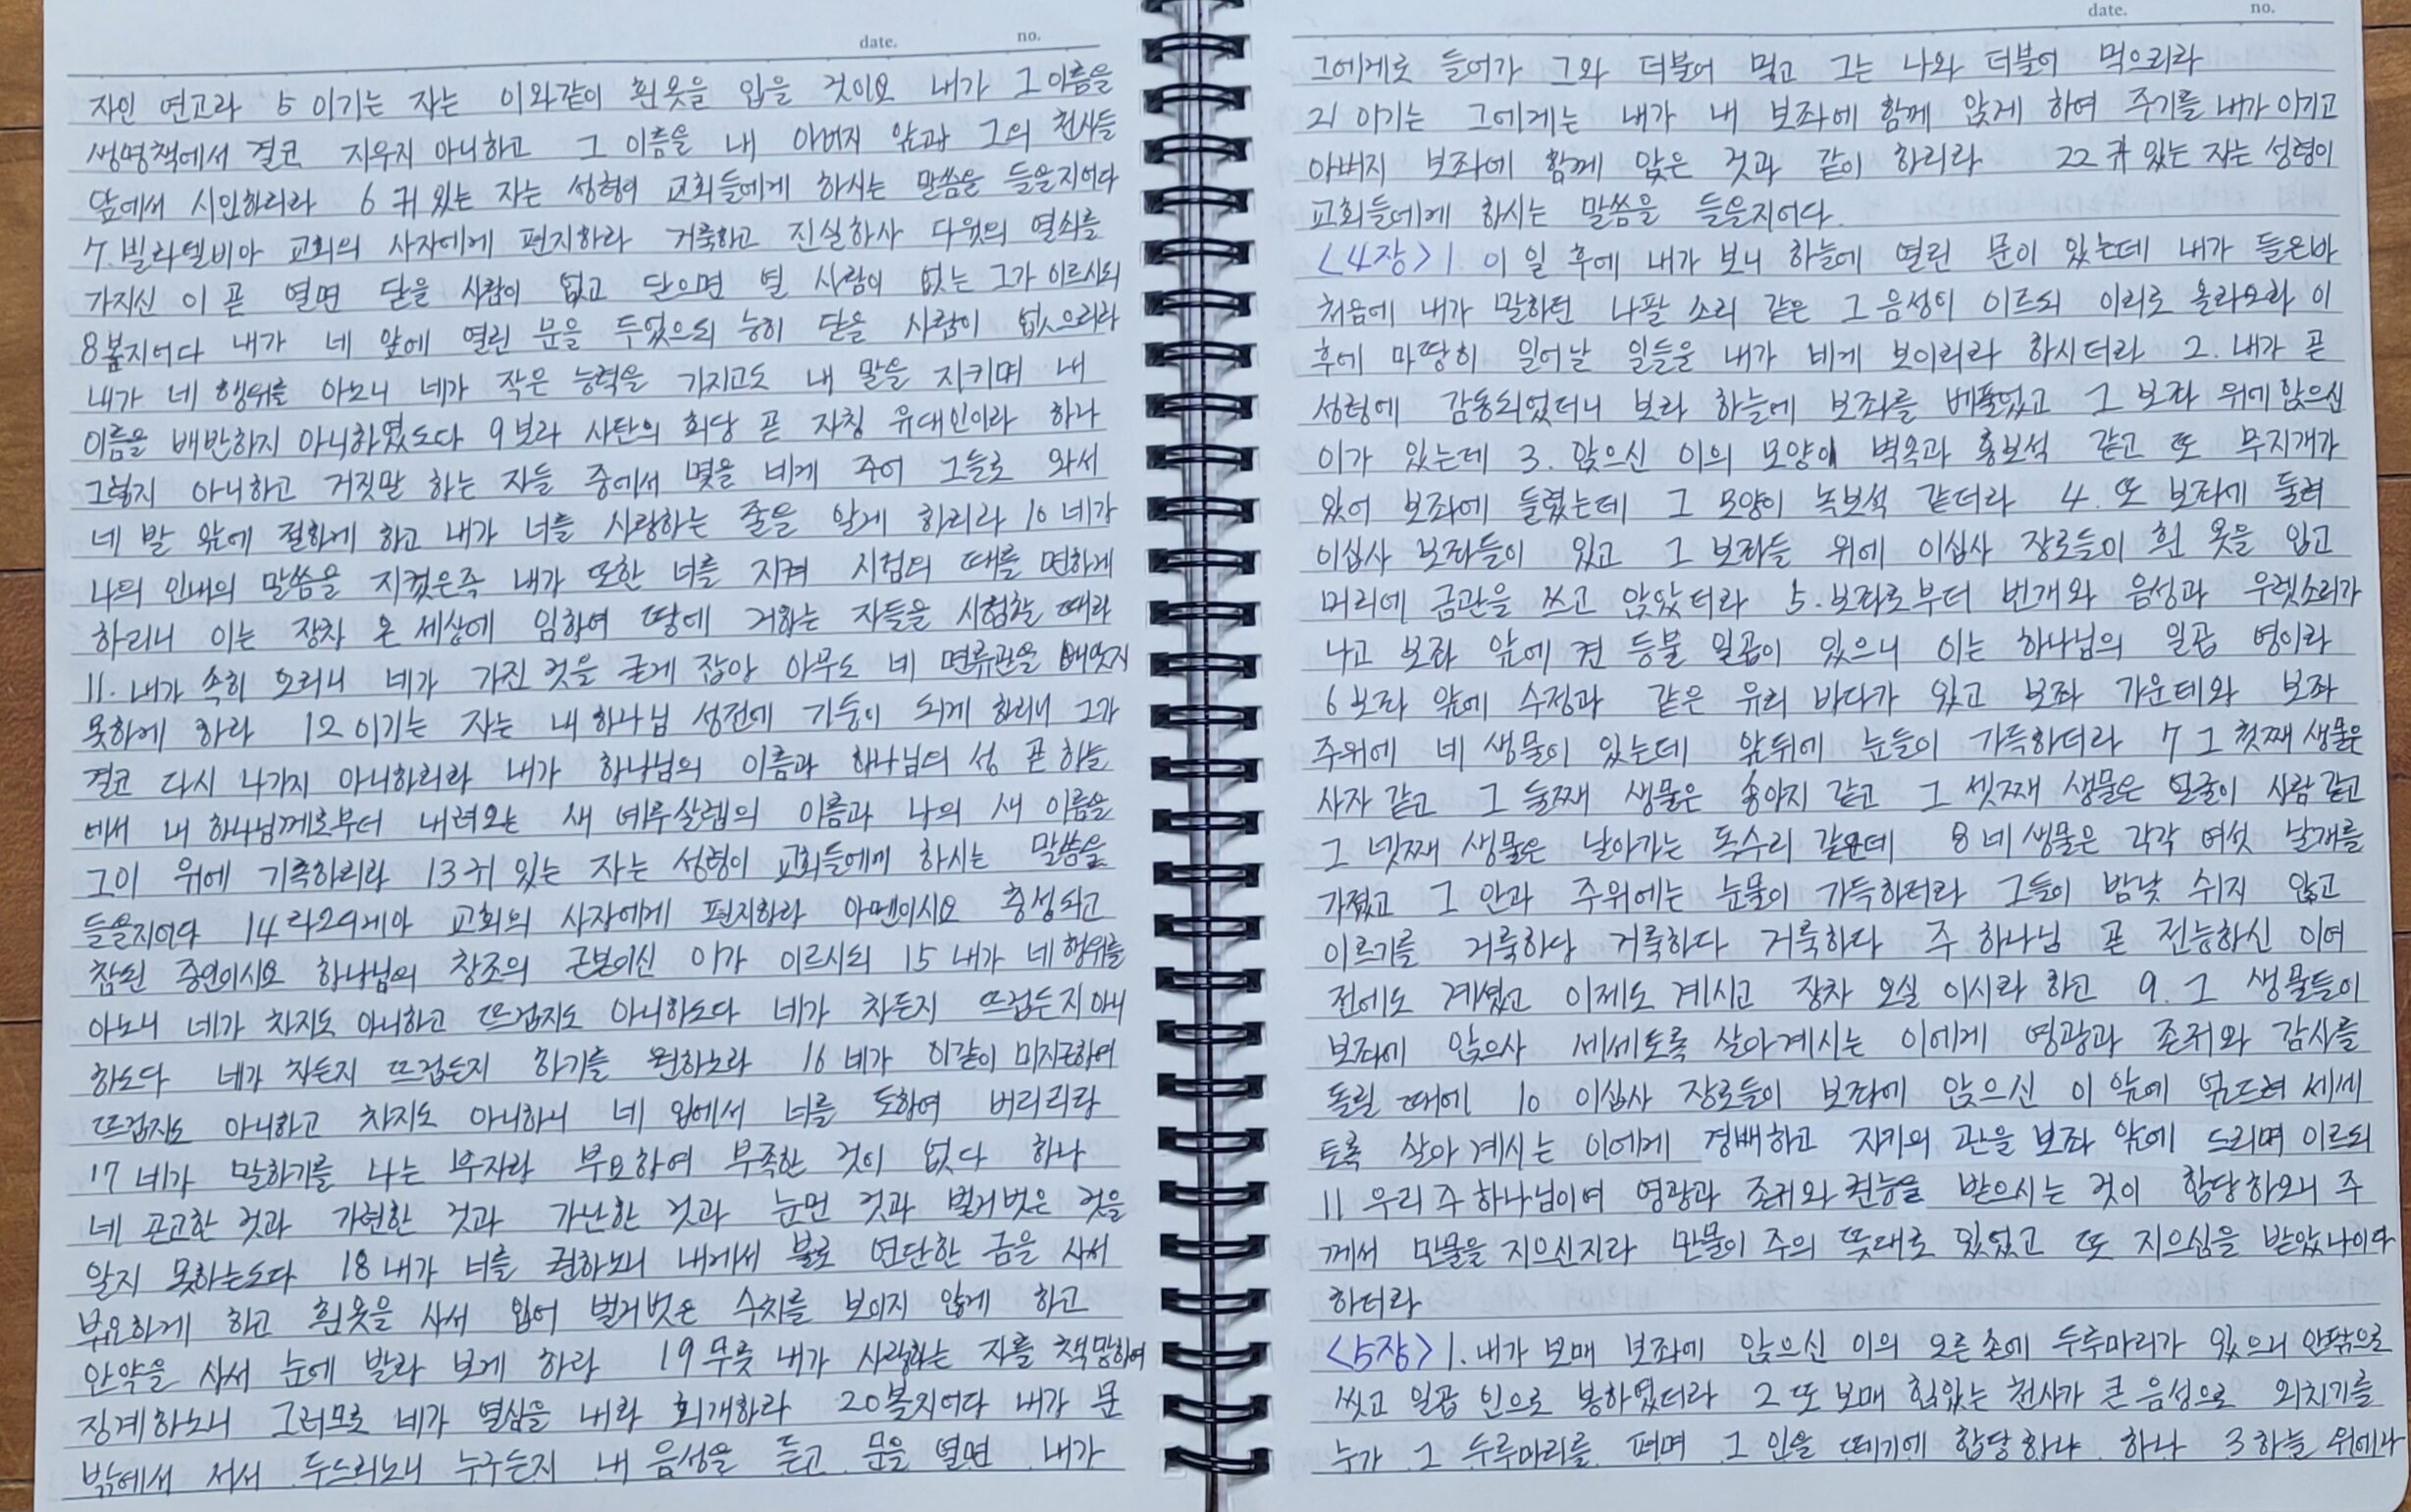 date. no.
자인 연고라 5 이기는 자는 이와같이 흰옷을 입을 것이요 내가 그이름을
생명책에서 결코 지우지 아니하고 그 이름을 내 아버지 앞과 그의 천사들
앞에서 시인하리라 6 귀있는 자는 성령이 교회들에게 하시는 말씀을 들을지어다
7. 빌라델비아 교회의 사자에게 편지하라 거룩하고 진실하사 다윗의 열쇠를
가지신 이 곧 열면 닫을 사람이 없고 닫으면 열 사람이 없는 그가 이르시되
8 볼지어다 내가 네 앞에 열린 문을 두었으되 능히 닫을 사람이 없으리라
내가 네 행위를 아노니 네가 작은 능력을 가지고도 내 말을 지키며 내
이름을 배반하지 아니하였도다 9 보라 사탄의 회당 곧 자칭 유대인이라 하나
그렇지 아니하고 거짓말 하는 자들 중에서 몇을 네게 주어 그들로 와서
네 발 앞에 절하게 하고 내가 너를 사랑하는 줄을 알게 하리라 10 네가
나의 인내의 말씀을 지켰은즉 내가 또한 너를 지켜 시험의 때를 면하게
하리니 이는 장차 온 세상에 임하여 땅에 거하는 자들을 시험할 때라
11. 내가 속히 오리니 네가 가진 것을 굳게 잡아 아무도 네 면류관을 빼앗지
못하게 하라 12 이기는 자는 내 하나님 성전에 기둥이 되게 하리니 그가
결코 다시 나가지 아니하리라 내가 하나님의 이름과 하나님의 성 곧 하늘
에서 내 하나님께로부터 내려오는 새 예루살렘의 이름과 나의 새 이름을
그이 위에 기록하리라 13 귀 있는 자는 성령이 교회들에게 하시는 말씀을
들을지어다 14 라오디게아 교회의 사자에게 편지하라 아멘이시요 충성되고
참된 증인이시요 하나님의 창조의 근본이신 이가 이르시되 15 내가 네 행위를
아노니 네가 차지도 아니하고 뜨겁지도 아니하도다 네가 차든지 뜨겁든지 아니
하도다 네가 차든지 뜨겁든지 하기를 원하노라 16 네가 이같이 미지근하여
뜨겁지도 아니하고 차지도 아니하니 네 입에서 너를 토하여 버리리라
17 네가 말하기를 나는 부자라 부요하여 부족한 것이 없다 하나
네 곤고한 것과 가련한 것과 가난한 것과 눈먼 것과 벌거벗은 것을
알지 못하는도다 18 내가 너를 권하노니 내게서 불로 연단한 금을 사서
부요하게 하고 흰옷을 사서 입어 벌거벗은 수치를 보이지 않게 하고
안약을 사서 눈에 발라 보게 하라 19 무릇 내가 사랑하는 자를 책망하여
징계하노니 그러므로 네가 열심을 내라 회개하라 20 볼지어다 내가 문
밖에서 서서 두드리노니 누구든지 내 음성을 듣고 문을 열면 내가
date. no.
그에게로 들어가 그와 더불어 먹고 그는 나와 더불어 먹으리라
21 이기는 그에게는 내가 내 보좌에 함께 앉게 하여 주기를 내가 이기고
아버지 보좌에 함께 앉은 것과 같이 하리라 22 귀 있는 자는 성령이
교회들에게 하시는 말씀을 들을지어다.
<4장> 1 이 일 후에 내가 보니 하늘에 열린 문이 있는데 내가 들은바
처음에 내가 말하던 나팔 소리 같은 그 음성이 이르되 이리로 올라오라 이
후에 마땅히 일어날 일들을 내가 네게 보이리라 하시더라 2. 내가 곧
성령에 감동되었더니 보라 하늘에 보좌를 베풀었고 그 보좌 위에 앉으신
이가 있는데 3. 앉으신 이의 모양이 벽옥과 홍보석 같고 또 무지개가
있어 보좌에 둘렸는데 그 모양이 녹보석 같더라 4. 또 보좌에 둘려
이십사 보좌들이 있고 그 보좌들 위에 이십사 장로들이 흰 옷을 입고
머리에 금관을 쓰고 앉았더라 5. 보좌로부터 번개와 음성과 우렛소리가
나고 보좌 앞에 켠 등불 일곱이 있으니 이는 하나님의 일곱 영이라
6 보좌 앞에 수정과 같은 유리 바다가 있고 보좌 가운데와 보좌
주위에 네 생물이 있는데 앞뒤에 눈들이 가득하더라 7 그 첫째 생물은
사자 같고 그 둘째 생물은 송아지 같고 그 셋째 생물은 얼굴이 사람 같고
그 넷째 생물은 날아가는 독수리 같은데 8 네 생물은 각각 여섯 날개를
가졌고 그 안과 주위에는 눈물이 가득하더라 그들이 밤낮 쉬지 않고
이르기를 거룩하다 거룩하다 거룩하다 주 하나님 곧 전능하신 이여
전에도 계셨고 이제도 계시고 장차 오실 이시라 하고 9. 그 생물들이
보좌에 앉으사 세세토록 살아계시는 이에게 영광과 존귀와 감사를
돌릴 때에 10 이십사 장로들이 보좌에 앉으신 이 앞에 엎드려 세세
토록 살아 계시는 이에게 경배하고 자키의 관을 보좌 앞에 드리며 이르되
11 우리 주 하나님이여 영광과 존귀와 권능을 받으시는 것이 합당하오니 주
께서 만물을 지으신지라 만물이 주의 뜻대로 있었고 또 지으심을 받았나이다
하더라
<5장> 1. 내가 보매 보좌에 앉으신 이의 오른 손에 두루마리가 있으니 안팎으로
씼고 일곱 인으로 봉하였더라 2 또 보매 힘있는 천사가 큰 음성으로 외치기를
누가 그 두루마리를 펴며 그 인을 떼기에 합당하냐 하나 3 하늘 위에나